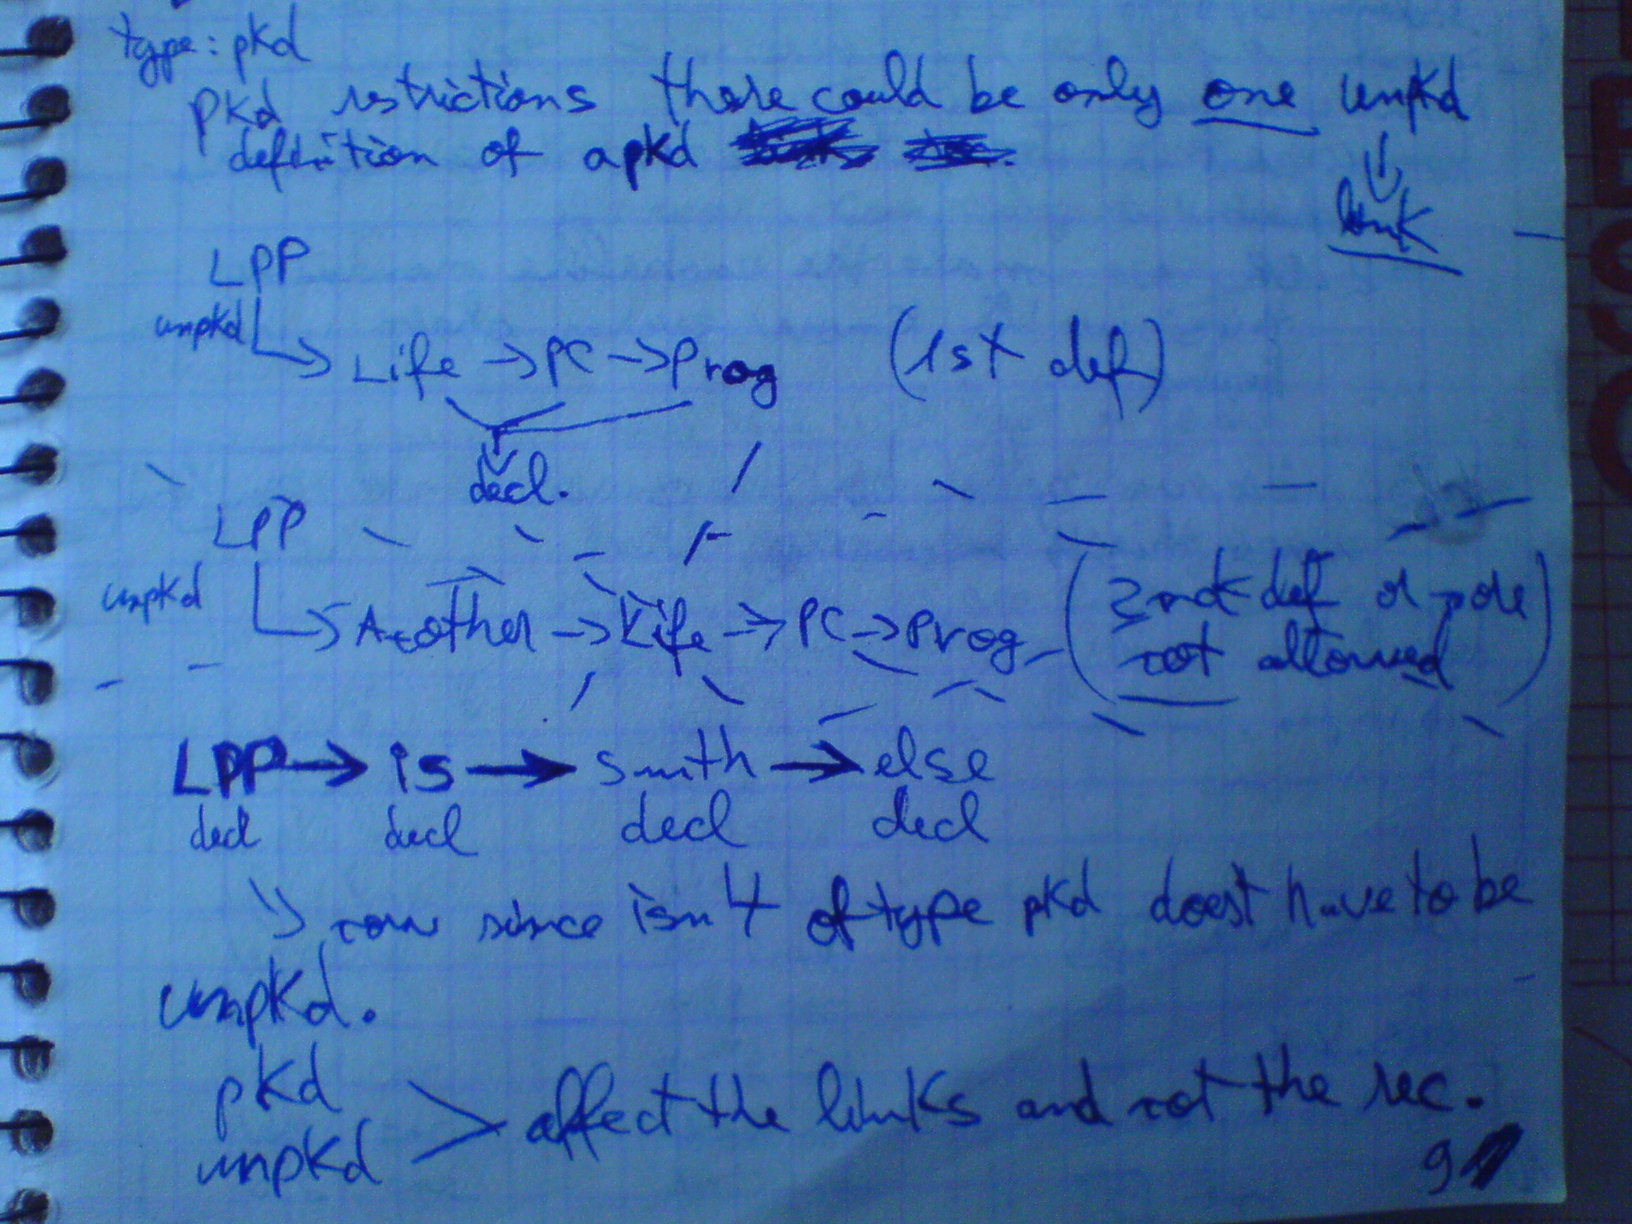 type: pkd
pkd restrictions there could be only one unpkd
definition of a pkd
link
LPP
unpkd
Life → PC → Prog (1st def)
decl.
LPP
unpkd
Another → Life → PC → Prog (2nd def or more
not allowed)
LPP → is → smth → else
decl decl decl decl
now since isn't of type pkd doest have to be
unpkd.
pkd
unpkd > affect the links and not the rec.
9